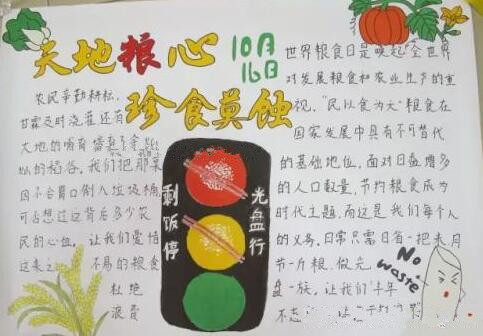 天地粮心
10月
16日
珍食莫蚀
农民辛勤耕耘,
甘霖及时浇灌还有
大地的哺育
的稻谷。我们把那菜
因不合胃口倒入垃圾桶
可占想过这背后多少农
民的心血,让我们爱惜
这来之不易的粮食
杜绝
浪费
剩饭停
光盘行
世界粮食日是唤起全世界
对发展粮食和农业生产的重
视,"民以食为天"粮食在
国家发展中具有不可替代
的基础地位,面对日益增多
的人口数量,节约粮食成为
时代主题,而这是我们每个人
的义务,日常只需日省一把米月
节一斤粮,做光
盘一族,让我们
不忘
No
waste